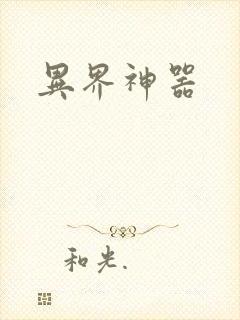 異界神器
和光.